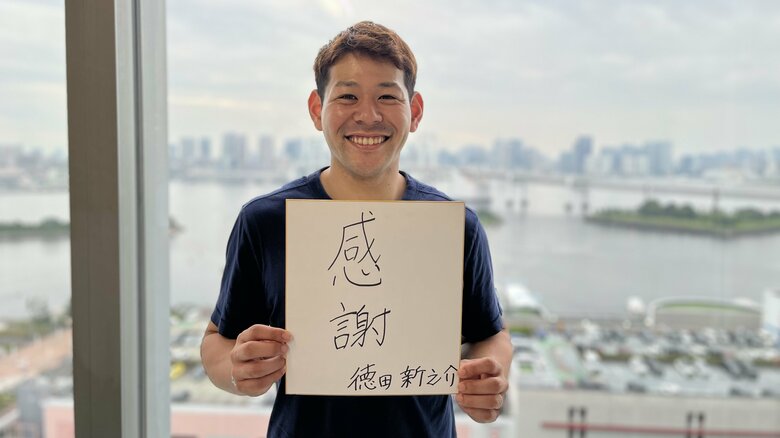 感
謝
徳田新之介